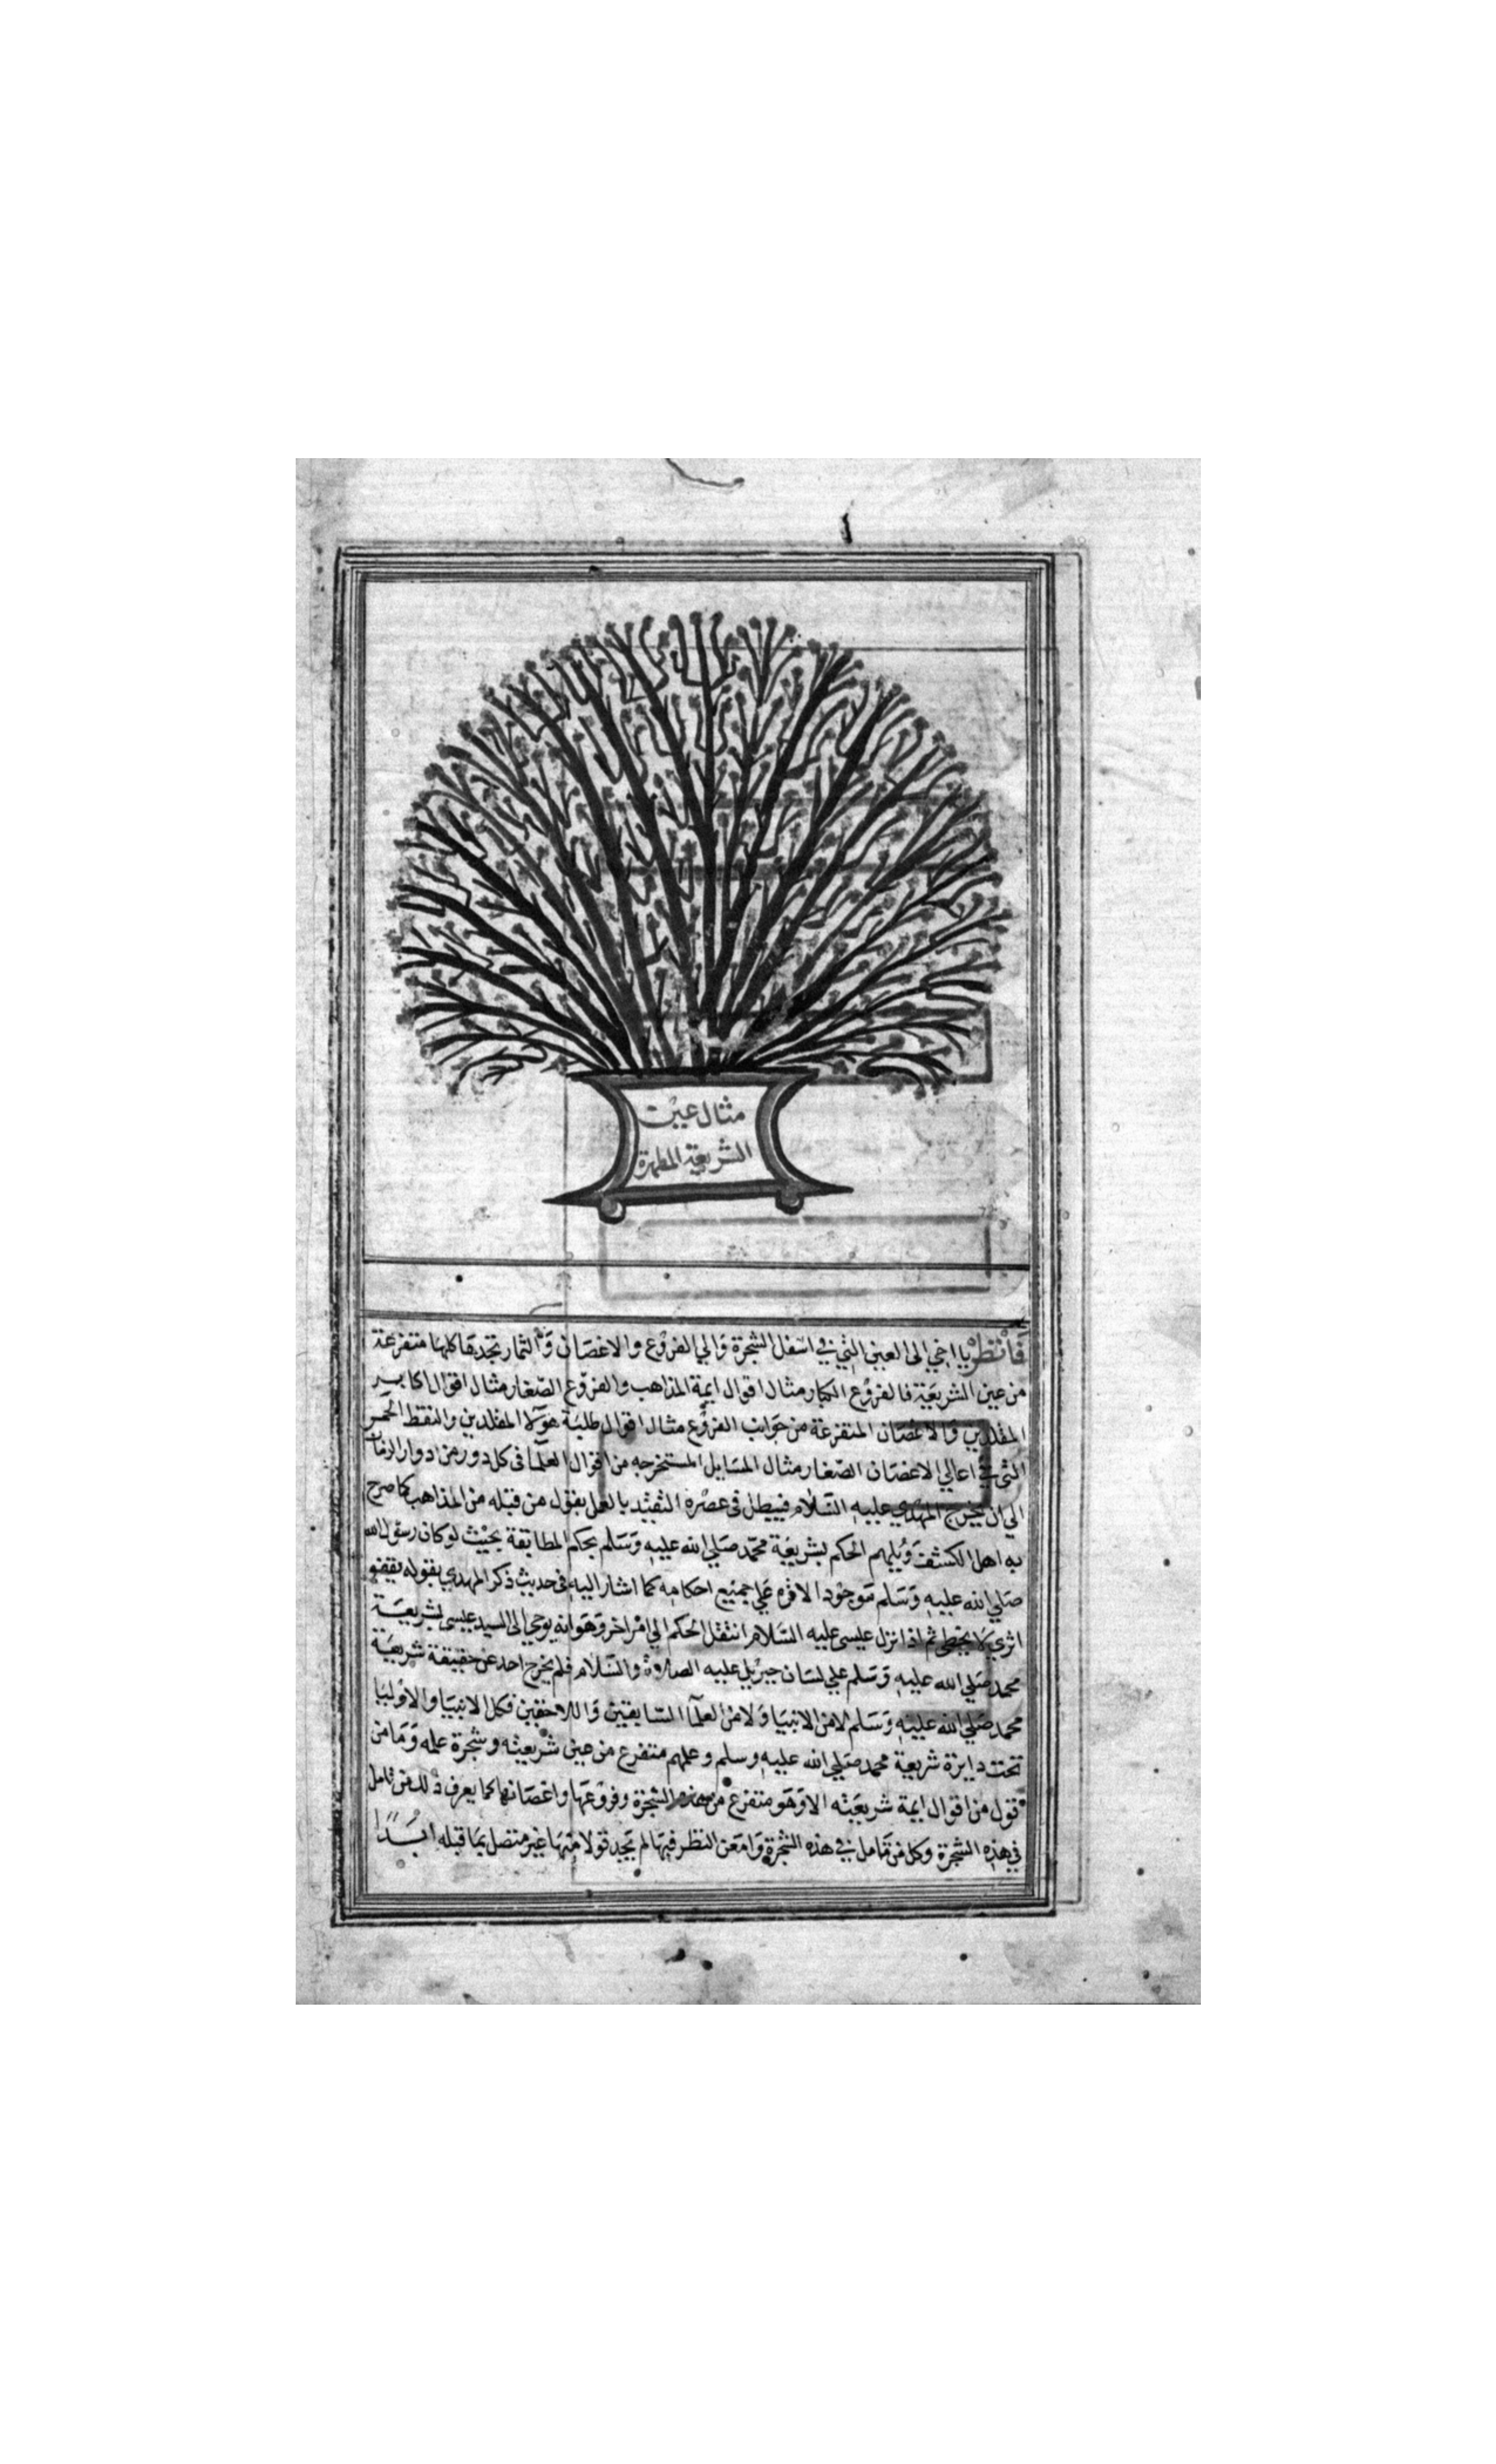 مثال عين
الشريعة المطهرة
فانظر يا اخي الى العين التي في اسفل الشجرة والي الفروع والاغصان والثمار تجدها كلها متفرعة
من عين الشريعة فالفروع الكبار مثال اقوال ايمة المذاهب والفروع الصغار مثال اقوال اكابر
المقلدين والاغصان المتفرعة من جوانب الفروع مثال اقوال طلبة هولا المقلدين والنقط الحمر
التي في اعالي الاغصان الصغار مثال المسايل المستخرجه من اقوال العلما في كل دور من ادوار الزمان
الي ان يخرج المهدي عليه السلام فيبطل في عصره التقيد بالعمل بقول من قبله من المذاهب كما صرح
به اهل الكشف ويلهم الحكم بشريعة محمد صلي الله عليه وسلم بحكم المطابقة بحيث لو كان رسول الله
صلي الله عليه وسلم موجودا لاقره علي جميع احكامه كما اشار اليه في حديث ذكر المهدي بقوله يقفو
اثري لا يخطي ثم اذا نزل عيسى عليه السلام انتقل الحكم الي امر اخر وهو انه يوحي الى السيد عيسى بشريعة
محمد صلي الله عليه وسلم علي لسان جبريل عليه الصلوة والسلام فلم يخرج احد عن حقيقة شريعة
محمد صلي الله عليه وسلم لا من الانبيا ولا من العلما السابقين واللاحقين فكل الانبيا والاوليا
تحت دايرة شريعة محمد صلي الله عليه وسلم وعلمهم متفرع من عين شريعته وشجرة علمه وما من
قول من اقوال ايمة شريعته الا وهو متفرع من هذه الشجرة وفروعها واغصانها كما يعرف ذلك من تامل
في هذه الشجرة وكل من تامل في هذه الشجرة وامعن النظر فيها لم يجد قولا منها غير متصل بما قبله ابدا